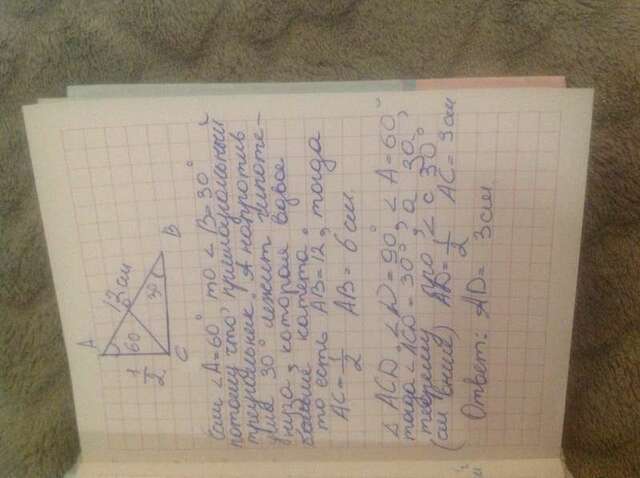 A
12 см
60
1
2
30
C
B
Если ∠A=60° то ∠B=30°
потому что прямоугольный
треугольник. А напротив
угла 30° лежит гипоте-
нуза, которая вдвое
больше катета,
то есть AB=12, тогда
AC=1/2 AB=6 см.
△ ACD, ∠D=90°, ∠A=60°
тогда ∠ACD=30°, а 30,
теорему про ∠ с 30°
(см выше) AD=1/2 AC=3 см
Ответ: AD=3 см